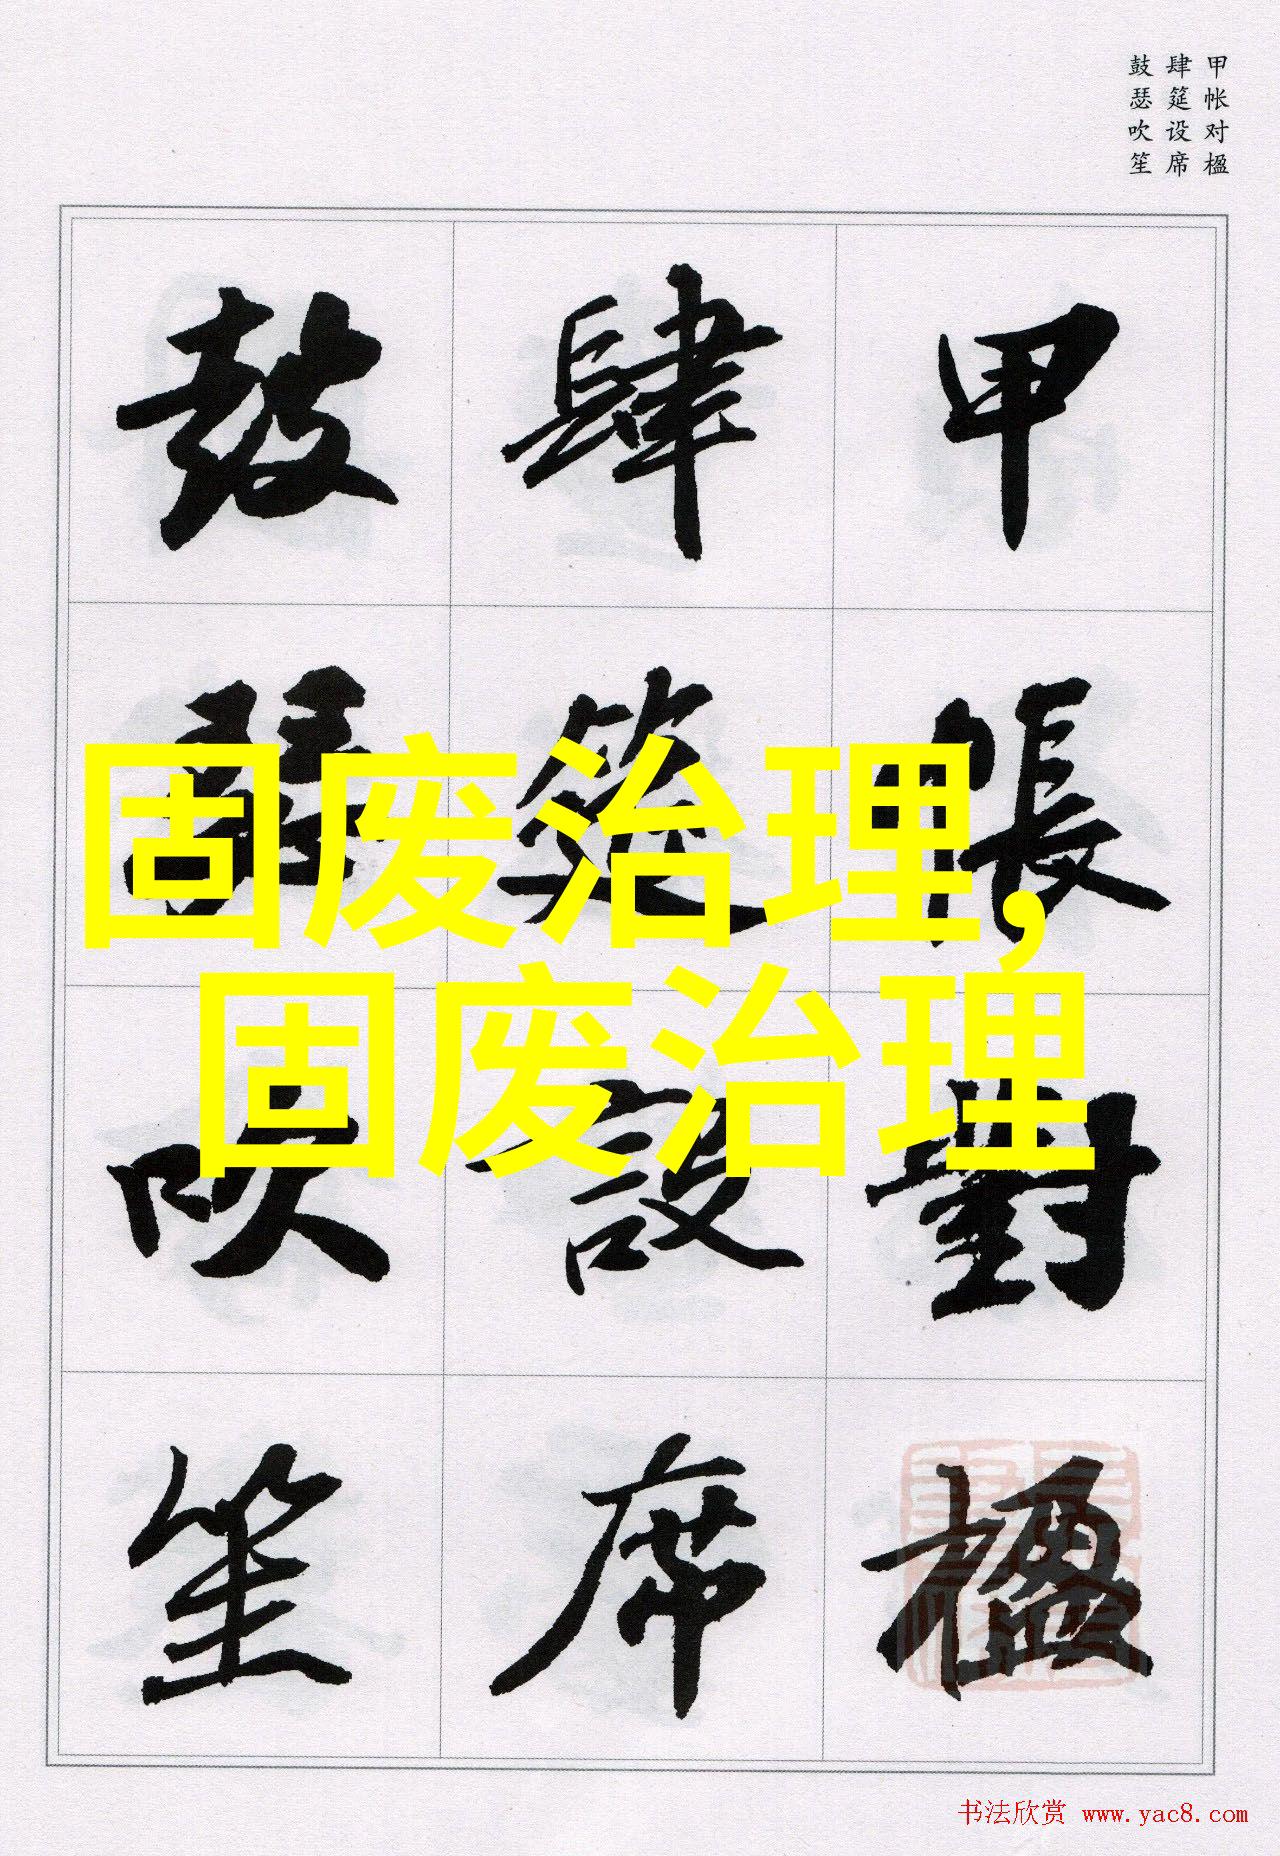 甲帐对楹
肆筵设席
鼓瑟吹笙
甲帳對楹
肆筵設席
鼓瑟吹笙
固废治理,
固废治理
书法欣赏 www.yac8.com